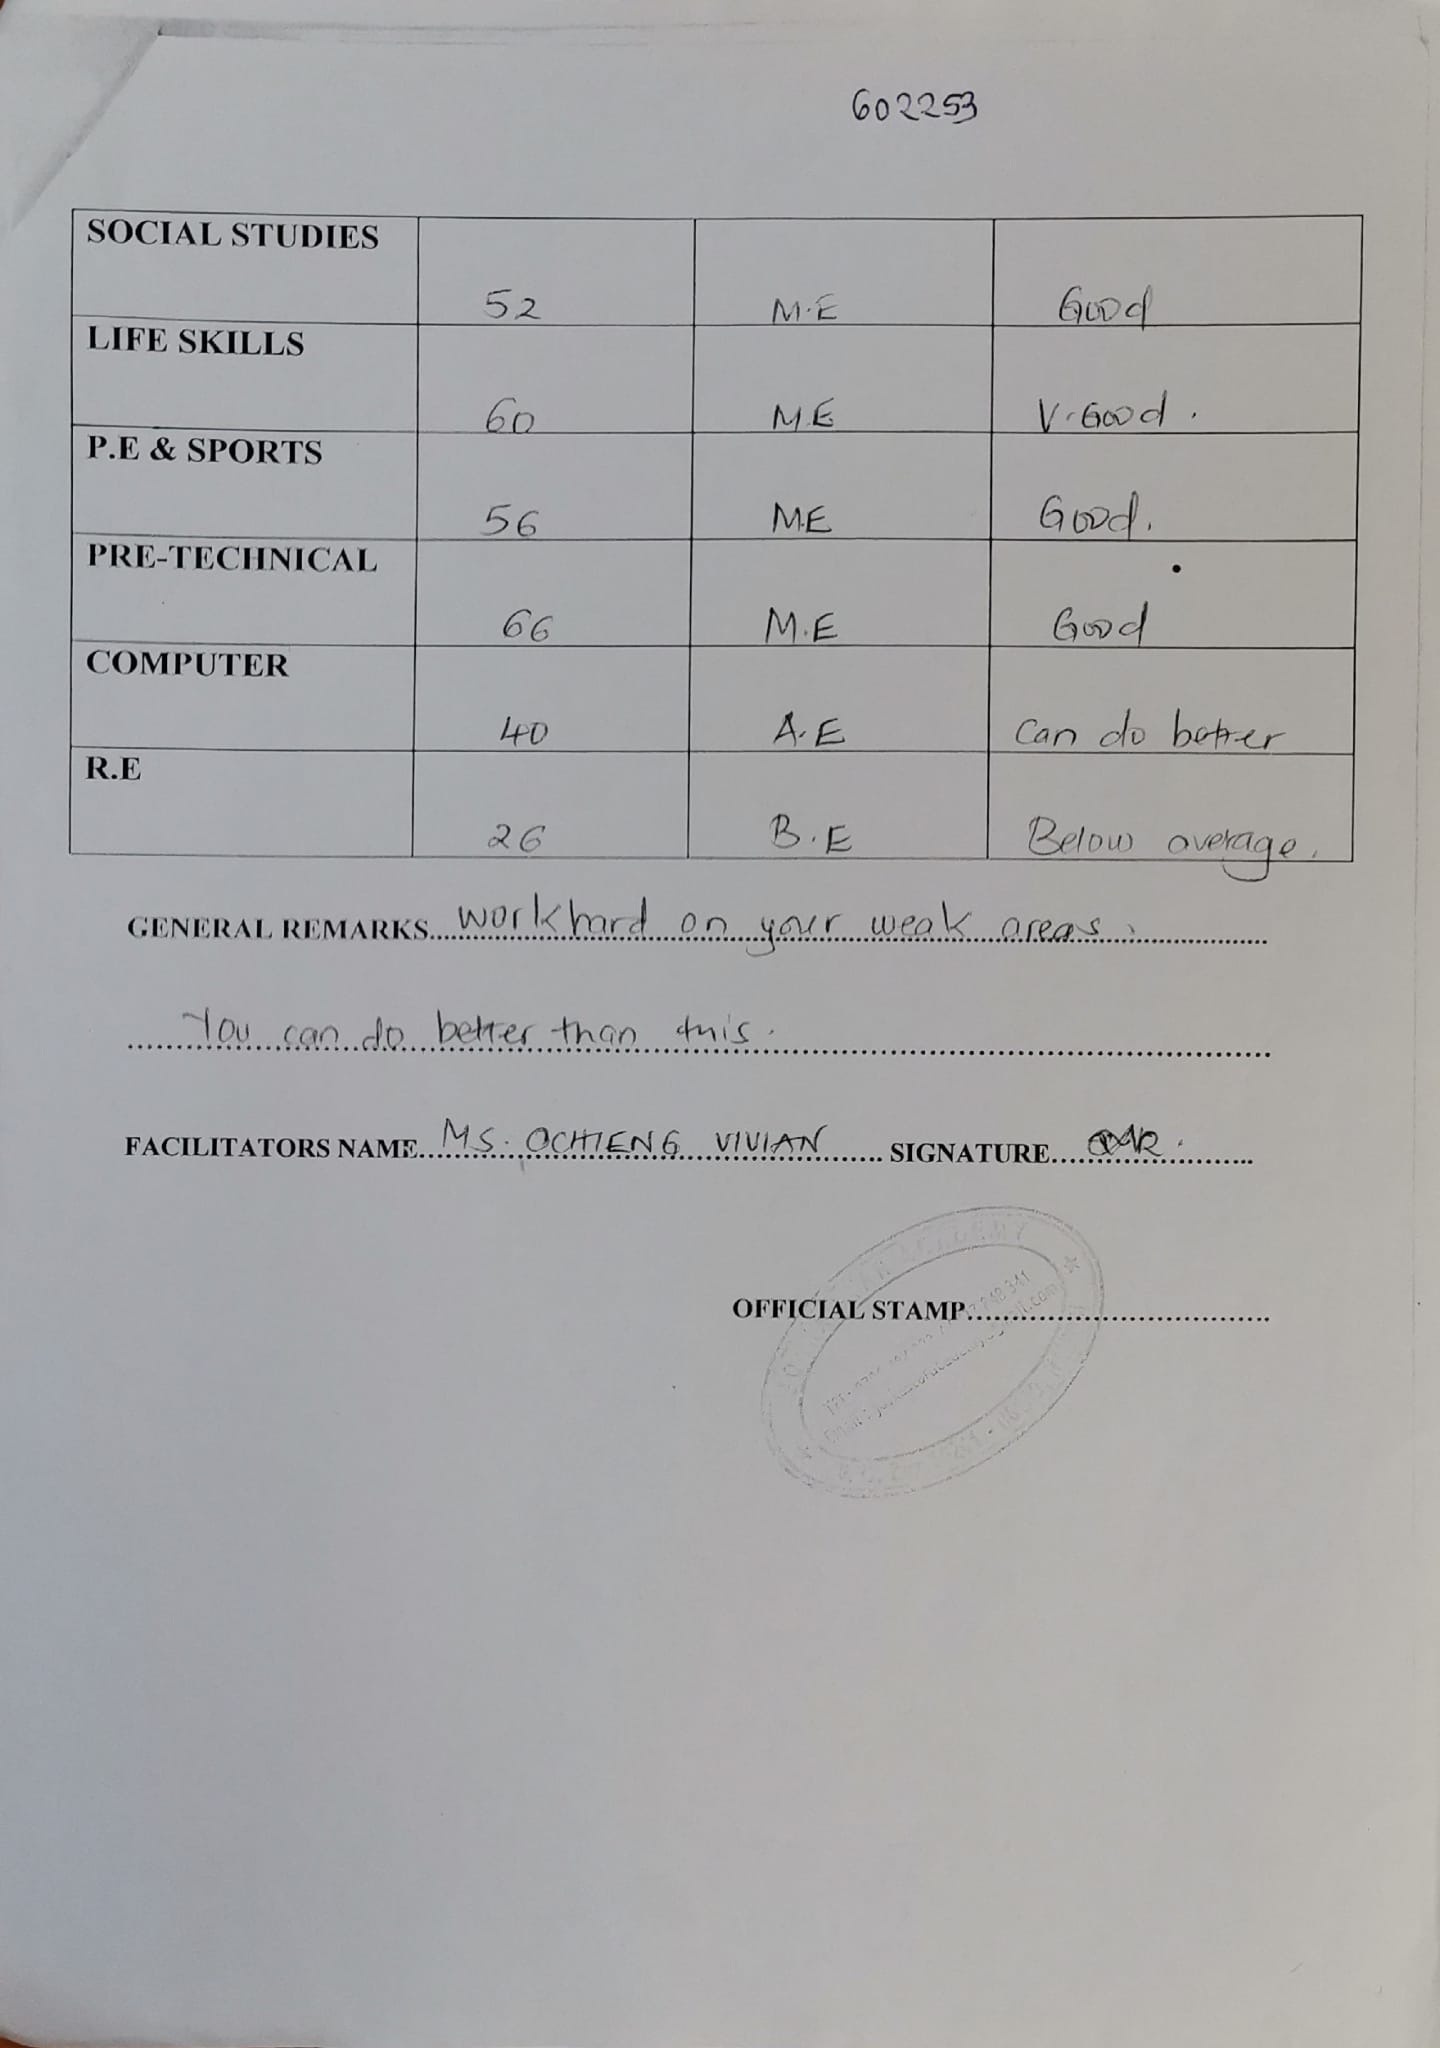 602253
SOCIAL STUDIES 52 M.E Good
LIFE SKILLS 60 M.E V.Good.
P.E & SPORTS 56 M.E Good.
PRE-TECHNICAL 66 M.E Good
COMPUTER 40 A.E Can do better
R.E 26 B.E Below average.
GENERAL REMARKS... Work hard on your weak areas.
You can do better than this.
FACILITATORS NAME... MS. OCHIENG VIVIAN ... SIGNATURE...
ACADEMY
OFFICIAL STAMP...